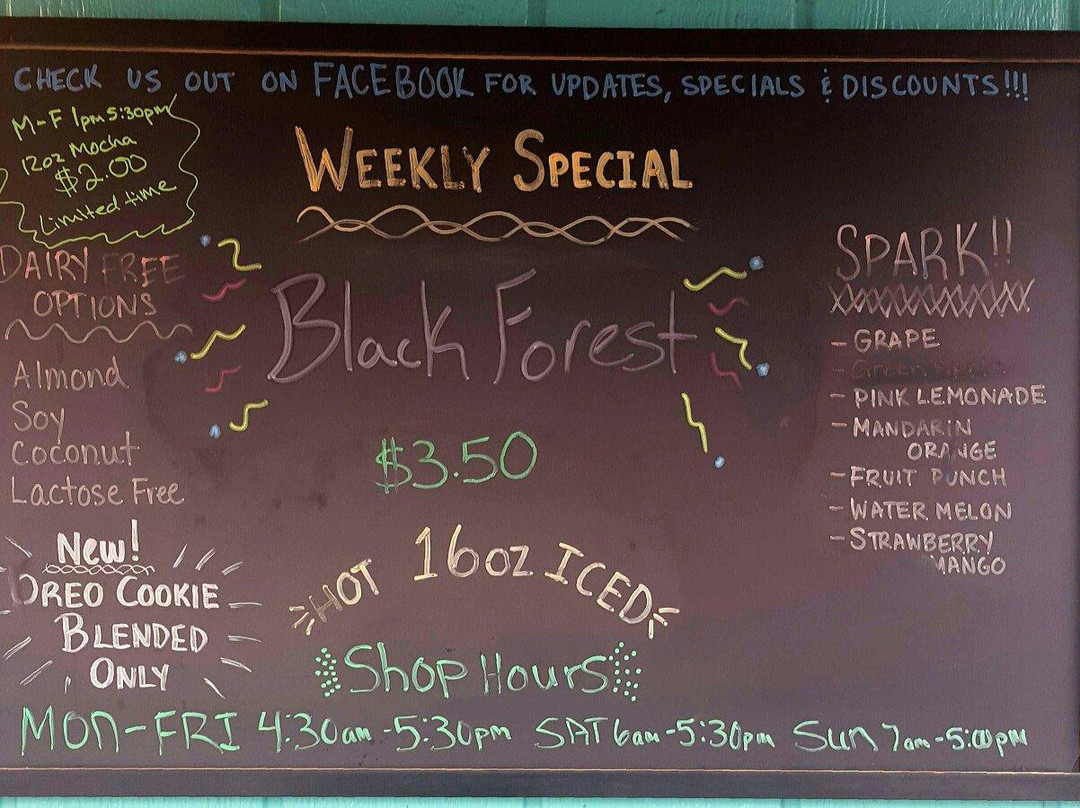 CHECK US OUT ON FACEBOOK FOR UPDATES, SPECIALS & DISCOUNTS!!!
M-F 1pm 5:30pm
12oz Mocha
$2.00
Limited time
WEEKLY SPECIAL
Black Forest
$3.50
HOT 16oz ICED
DAIRY FREE
OPTIONS
Almond
Soy
Coconut
Lactose Free
New!
OREO COOKIE
BLENDED
ONLY
SPARK!!
- GRAPE
- PINK LEMONADE
- MANDARIN
ORANGE
- FRUIT PUNCH
- WATER MELON
- STRAWBERRY
MANGO
Shop Hours
MON-FRI 4:30am-5:30pm SAT 6am-5:30pm Sun 7am-5:00pm